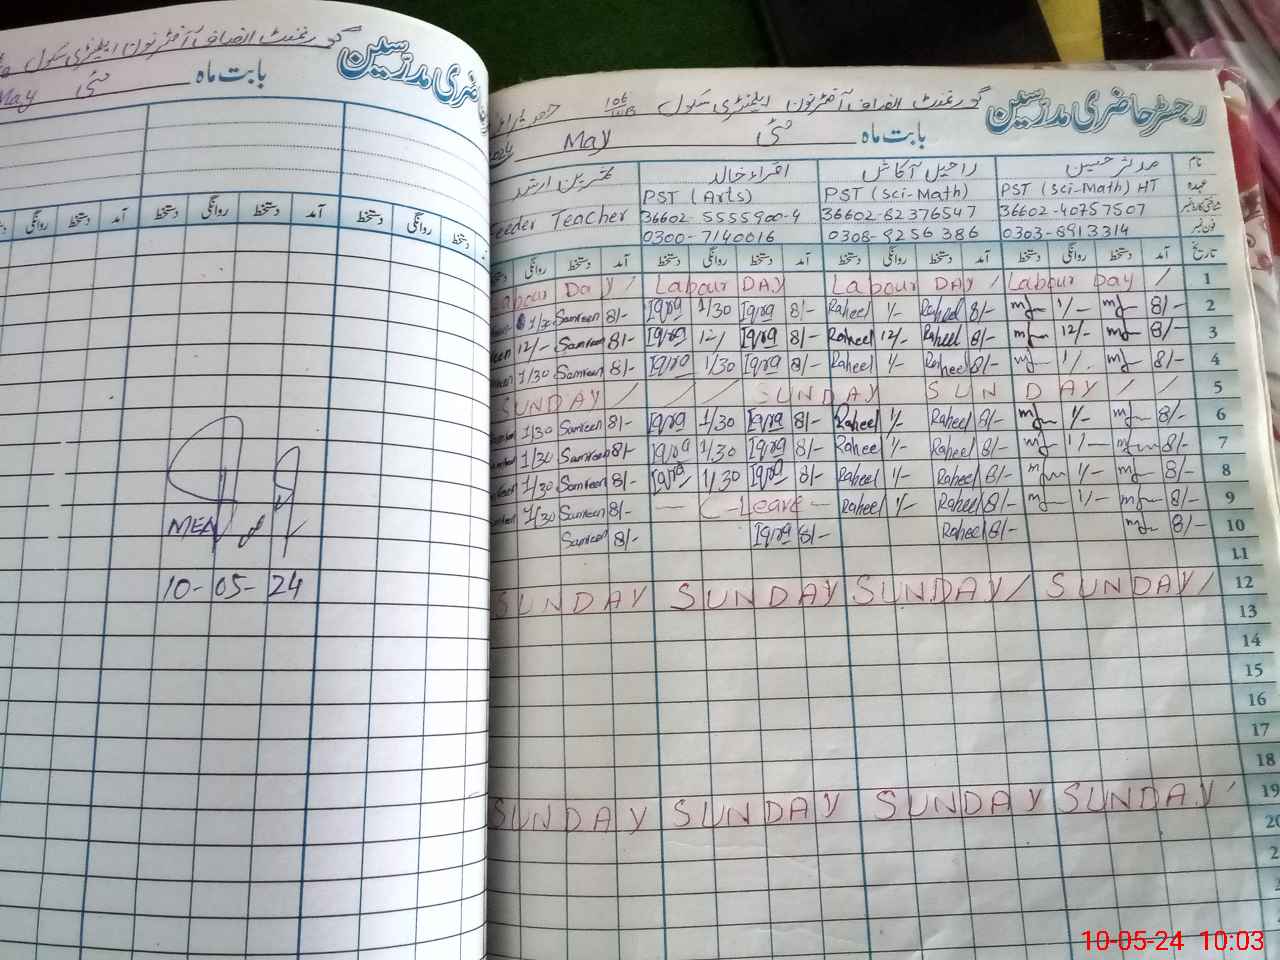 گورنمنٹ انصاف آفٹرنون ایلیمنٹری سکول
حاضری مدرسین
بابت ماہ مئی May
آمد دستخط روانگی دستخط آمد دستخط روانگی دستخط
MEA
10-05-24
رجسٹر حاضری مدرسین
گورنمنٹ انصاف آفٹرنون ایلیمنٹری سکول 106
بابت ماہ مئی May 2024
نام مدثر حسین راحیل آکاش اقراء خالد ثمرین ارشد
عہدہ PST (Sci-Math) HT PST (Sci-Math) PST (Arts) Feeder Teacher
36602-40757507 36602-82376547 36602-5555900-4
فون نمبر 0303-8913314 0308-9256386 0300-7140016
تاریخ آمد دستخط روانگی دستخط آمد دستخط روانگی دستخط آمد دستخط روانگی دستخط آمد دستخط
Labour Day / Labour DAY Labour DAY / Labour Day / 1
1/30 Samreen 8/- Iqra 1/30 Iqra 8/- Raheel 1/- Raheel 8/- 1/- 8/- 2
12/- Samreen 8/- Iqra 12/- Iqra 8/- Raheel 12/- Raheel 8/- 12/- 8/- 3
1/30 Samreen 8/- Iqra 1/30 Iqra 8/- Raheel 1/- Raheel 8/- 1/- 8/- 4
SUNDAY / / / SUNDAY SUNDAY / / 5
1/30 Samreen 8/- Iqra 1/30 Iqra 8/- Raheel 1/- Raheel 8/- 1/- 8/- 6
1/30 Samreen 8/- Iqra 1/30 Iqra 8/- Raheel 1/- Raheel 8/- 1/- 8/- 7
1/30 Samreen 8/- Iqra 1/30 Iqra 8/- Raheel 1/- Raheel 8/- 1/- 8/- 8
1/30 Samreen 8/- — C-Leave — Raheel 1/- Raheel 8/- 1/- 8/- 9
Samreen 8/- Iqra 8/- Raheel 8/- 8/- 10
11
SUNDAY SUNDAY SUNDAY / SUNDAY / 12
13
14
15
16
17
18
SUNDAY SUNDAY SUNDAY SUNDAY 19
20
10-05-24 10:03